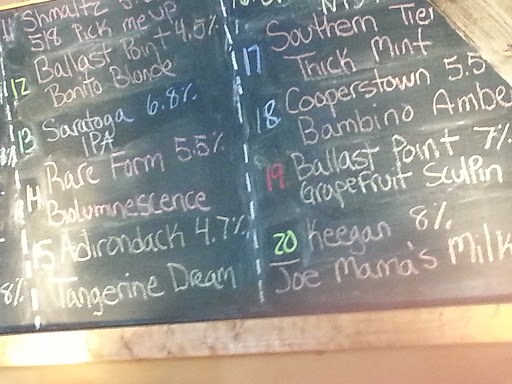 11 Shmaltz
518 Pick me up
12 Ballast Point 4.5%
Bonito Blonde
13 Saratoga 6.8%
IPA
14 Rare Form 5.5%
Bioluminescence
15 Adirondack 4.7%
8% Tangerine Dream
17 Southern Tier
Thick Mint
18 Cooperstown 5.5
Bambino Ambe
19 Ballast Point 7%
Grapefruit Sculpin
20 Keegan 8%
Joe Mama's Milk